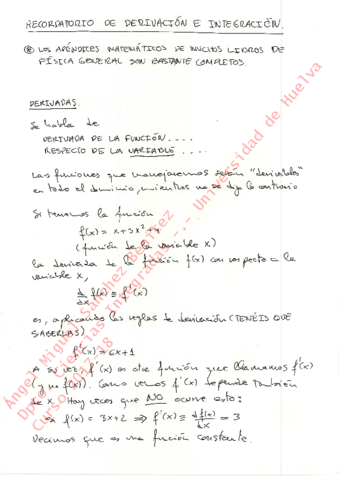 RECORDATORIO DE DERIVACIÓN E INTEGRACIÓN.
⊛ LOS APÉNDICES MATEMÁTICOS DE MUCHOS LIBROS DE
FÍSICA GENERAL SON BASTANTE COMPLETOS.
DERIVADAS.
Se habla de
DERIVADA DE LA FUNCIÓN....
RESPECTO DE LA VARIABLE ....
Las funciones que manejaremos serán "derivables"
en todo el dominio, mientras no se diga lo contrario
Si tenemos la función
f(x) = x+3x²+4
(función de la variable x)
la derivada de la función f(x) con respecto a la
variable x,
d/dx f(x) ≡ f'(x)
es, aplicando las reglas de derivación (TENÉIS QUE
SABERLAS)
f'(x) = 6x+1
A su vez, f'(x) es otra función que llamamos f'(x)
(y no f(x)). Como vemos f'(x) depende también
de x. Hay veces que NO ocurre esto:
f(x) = 3x+2 ⇒ f'(x) ≡ df(x)/dx = 3
Decimos que es una función constante.
Ángel Miguel Sánchez Benítez
Dpto. Ciencias Integradas - Universidad de Huelva
Curso 2017-2018